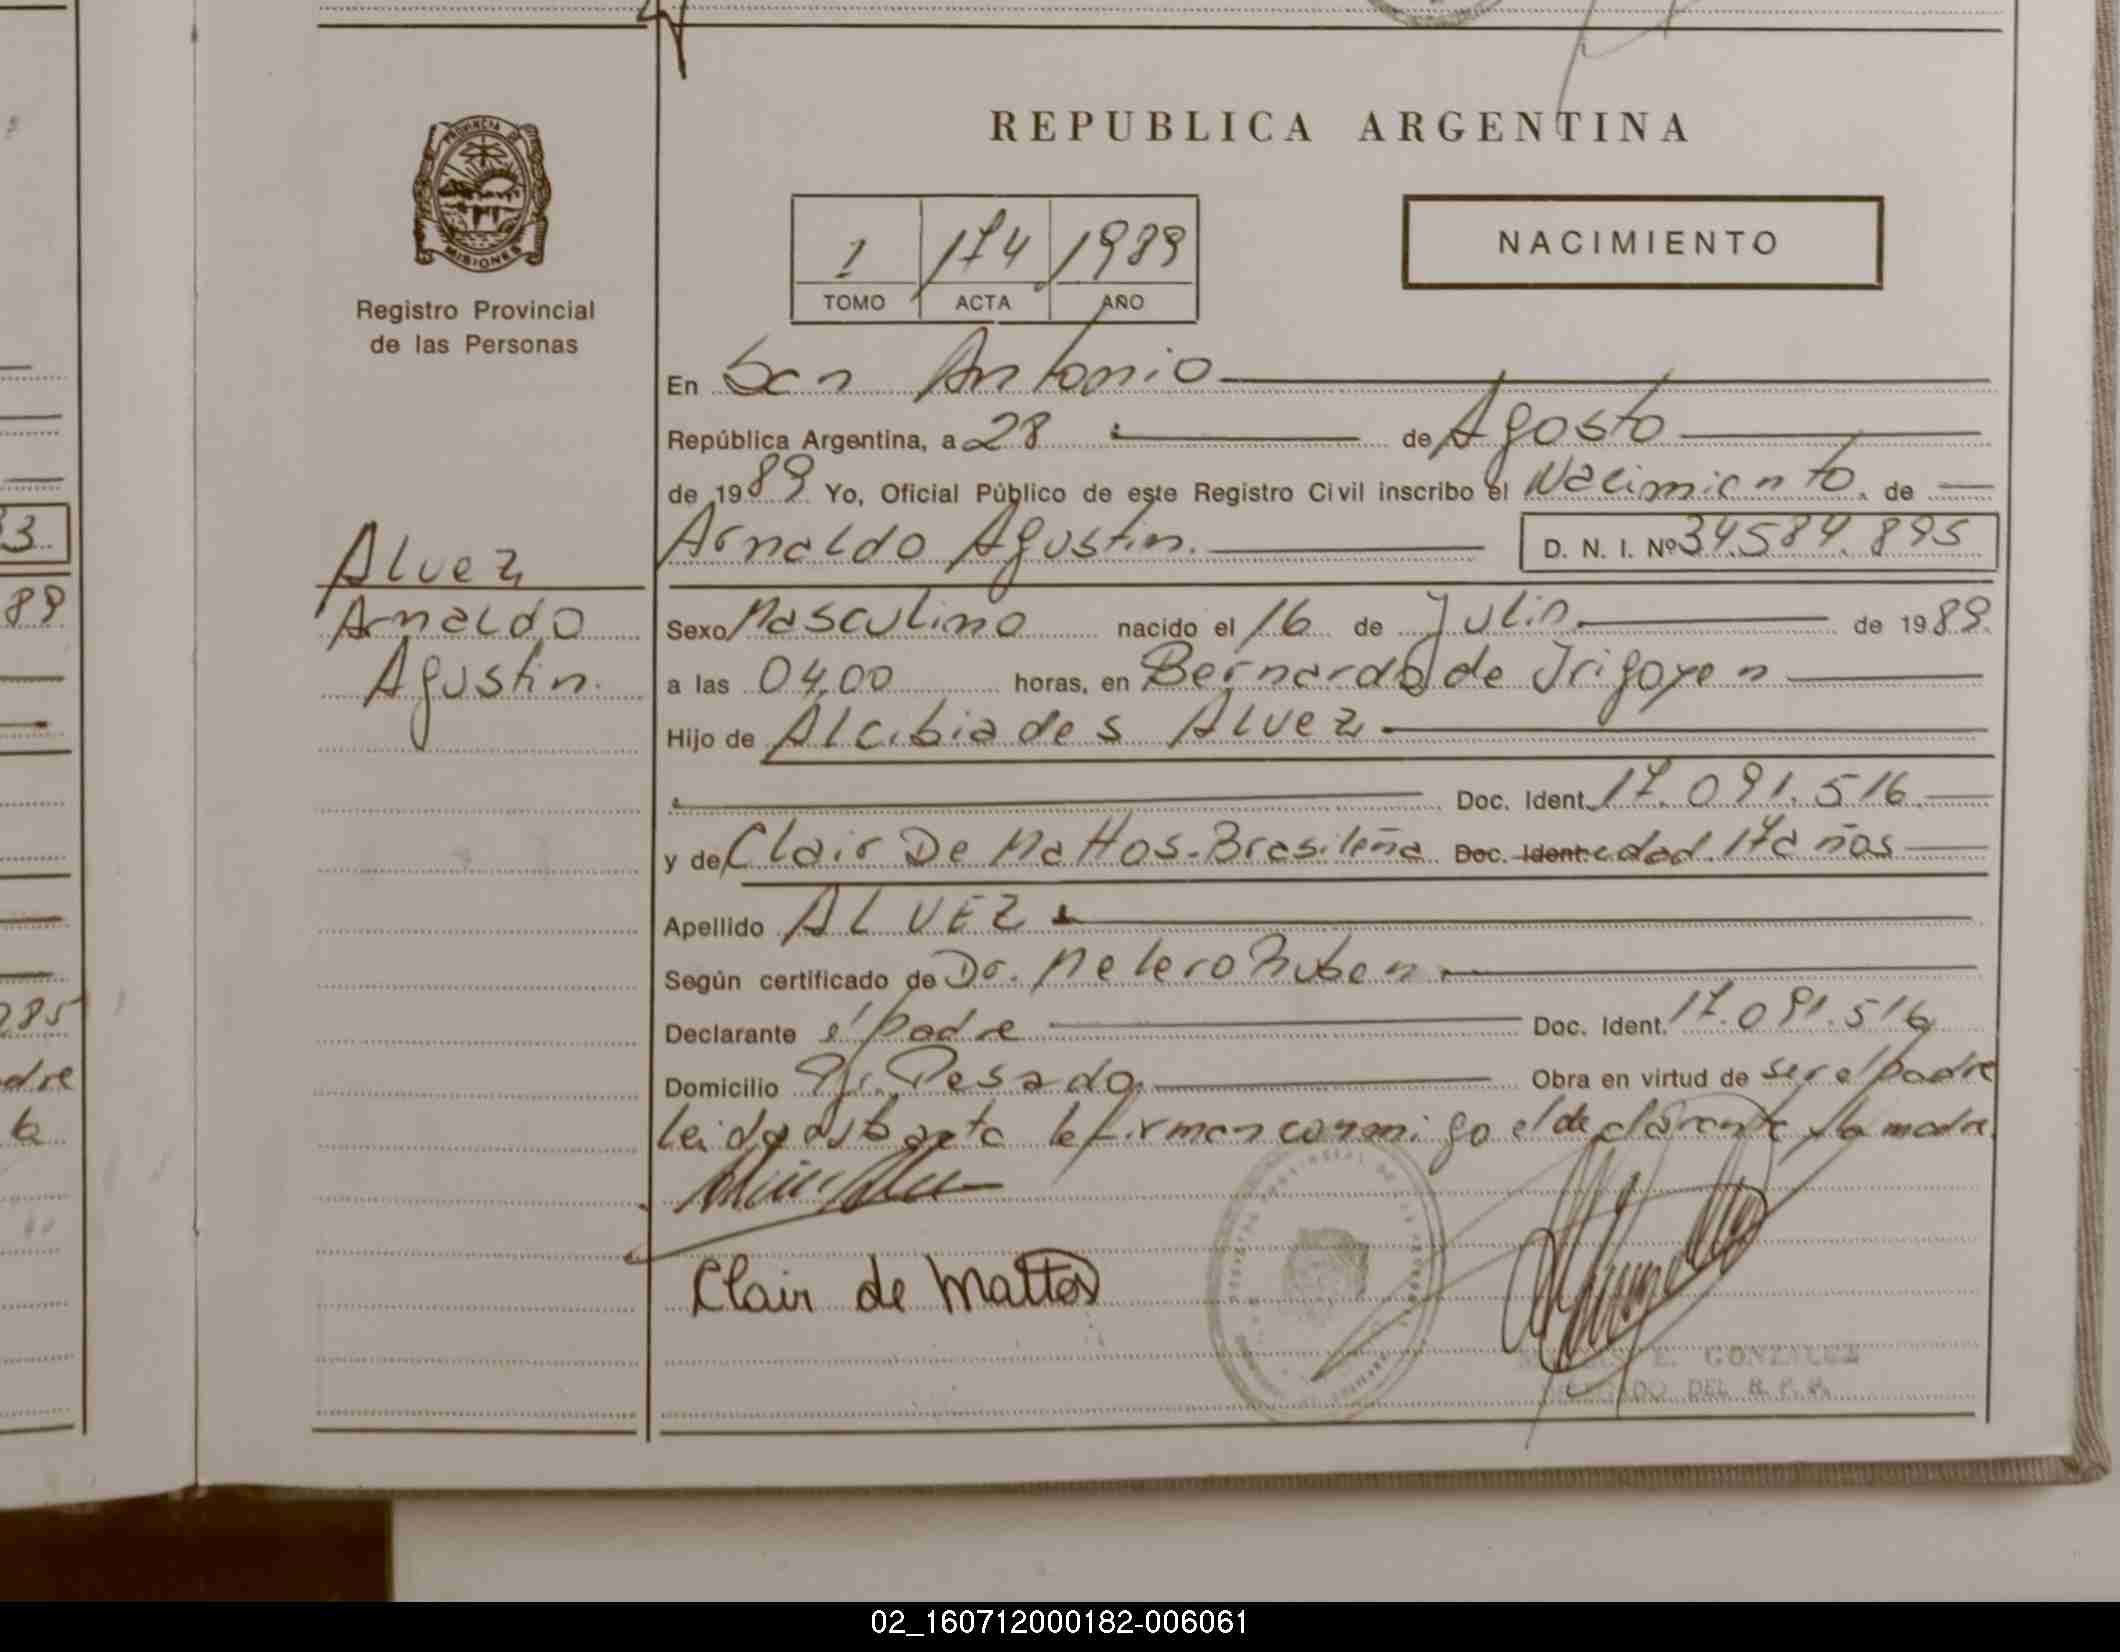 REPUBLICA ARGENTINA
PROVINCIA DE
MISIONES
Registro Provincial
de las Personas
1 174 1989
TOMO ACTA AÑO
NACIMIENTO
En San Antonio
República Argentina, a 28 de Agosto
de 1989 Yo, Oficial Público de este Registro Civil inscribo el Nacimiento de
Arnaldo Agustin. D. N. I. Nº 34.584.895
Alvez
Arnaldo
Agustin.
Sexo Masculino nacido el 16 de Julio de 1989.
a las 04,00 horas, en Bernardo de Irigoyen
Hijo de Alcibiades Alvez
Doc. Ident. 17.091.516
y de Clair De Mattos-Brasileña Doc. Ident. edad 17 años
Apellido ALVEZ
Según certificado de Dr. Melero Ruben
Declarante el padre Doc. Ident. 17.091.516
Domicilio Pje. Pesado Obra en virtud de ser el padre
leida esta acta la firman conmigo el declarante y la madre.
Clair de Mattos
E. GONZALEZ
DEL R. P. P.
33
89
285
adre
6
02_160712000182-006061